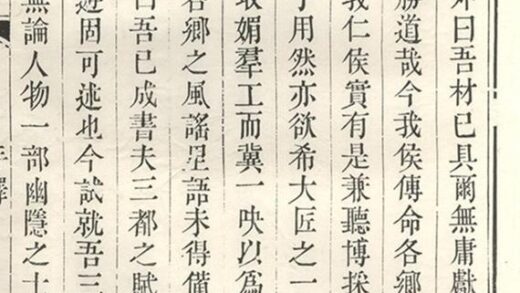 曰吾材已具爾無庸獻
勝道哉今我侯傳命各鄉
我仁侯實有是兼聽博採
用然亦欲希大匠之一
取媚羣工而冀一唊以爲
各鄉之風謠星語未得備
曰吾已成書夫三都之賦
遊固可述也今試就吾三
無論人物一部幽隱之士